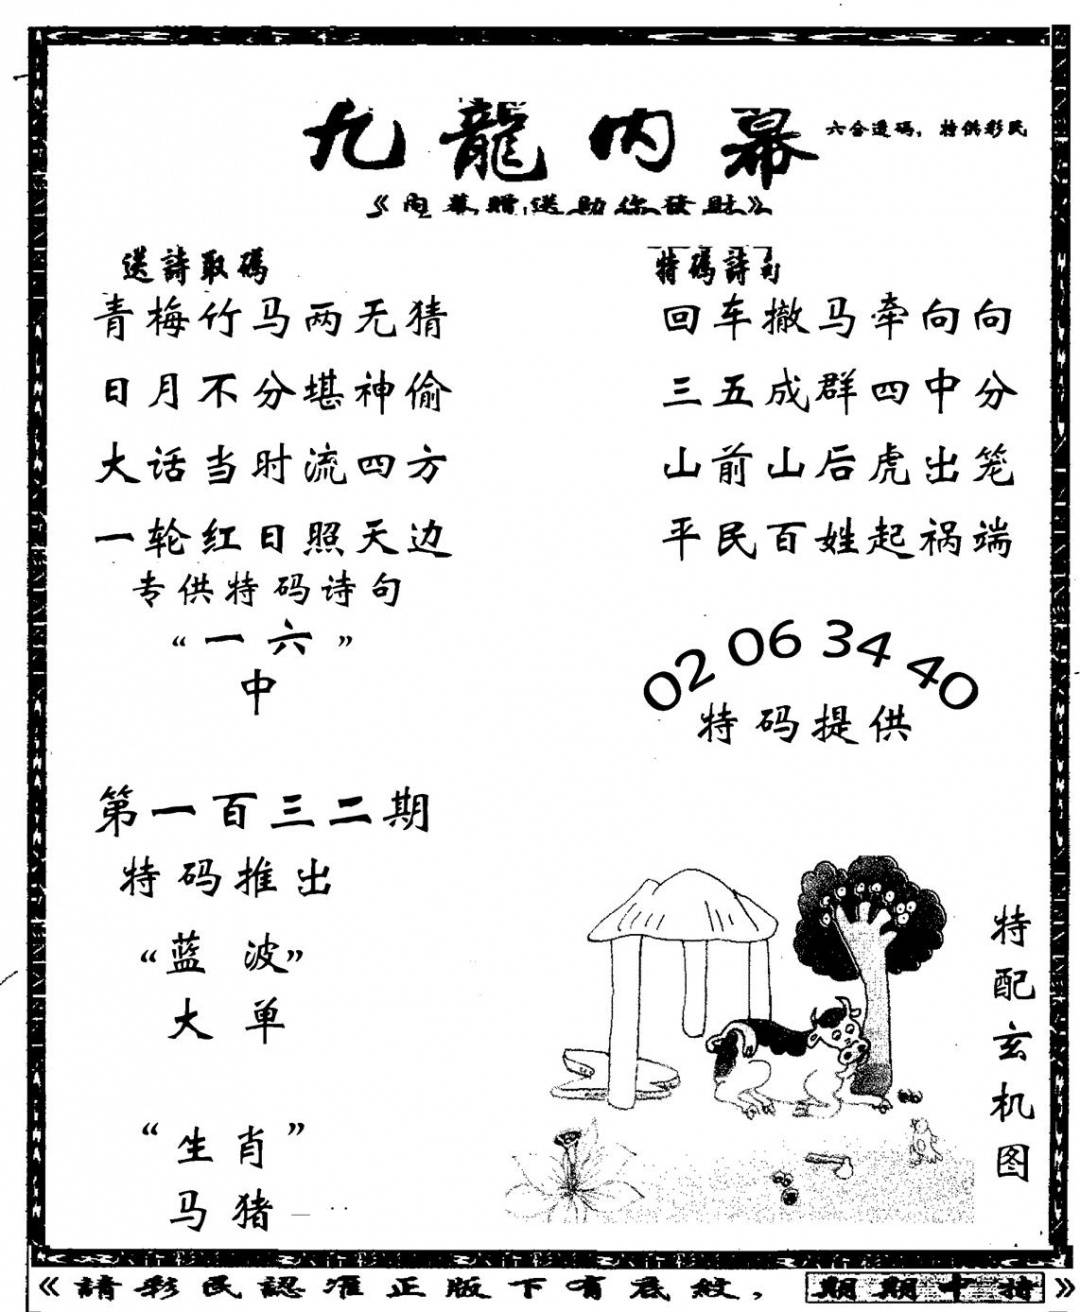 九龍内幕
六合透码，特供彩民
《内幕赠送助你發財》
送詩取碼
青梅竹马两无猜
日月不分堪神偷
大话当时流四方
一轮红日照天边
专供特码诗句
“一六”
中
第一百三二期
特码推出
“蓝波”
大单
“生肖”
马猪
特碼詩句
回车撤马牵向向
三五成群四中分
山前山后虎出笼
平民百姓起祸端
02 06 34 40
特码提供
特配玄机图
《請彩民認准正版下有底紋，期期中特》